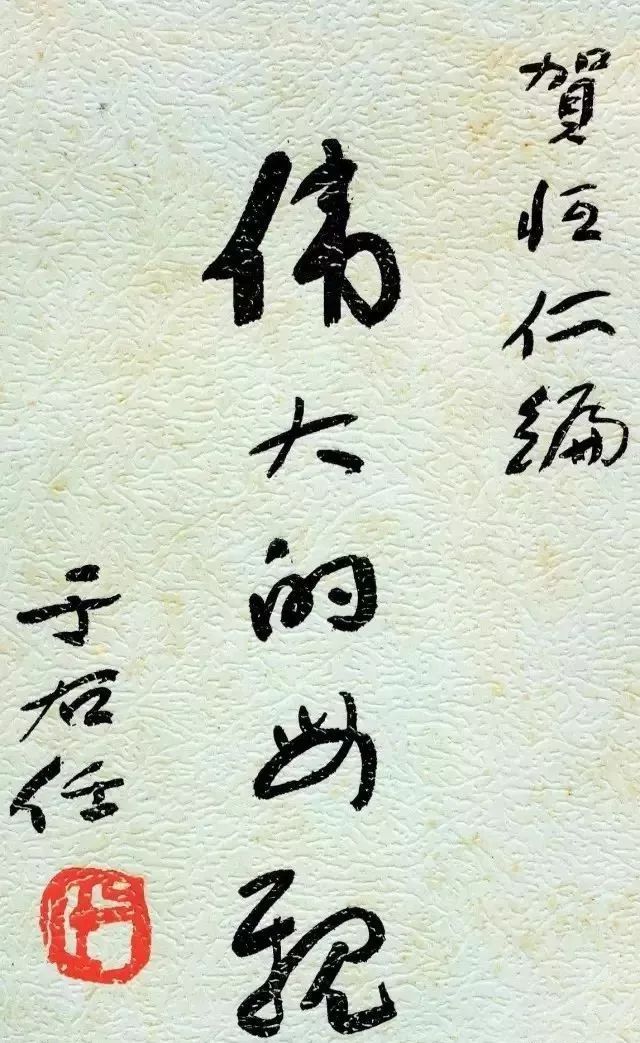 賀恒仁編
偉大的母親
于右任